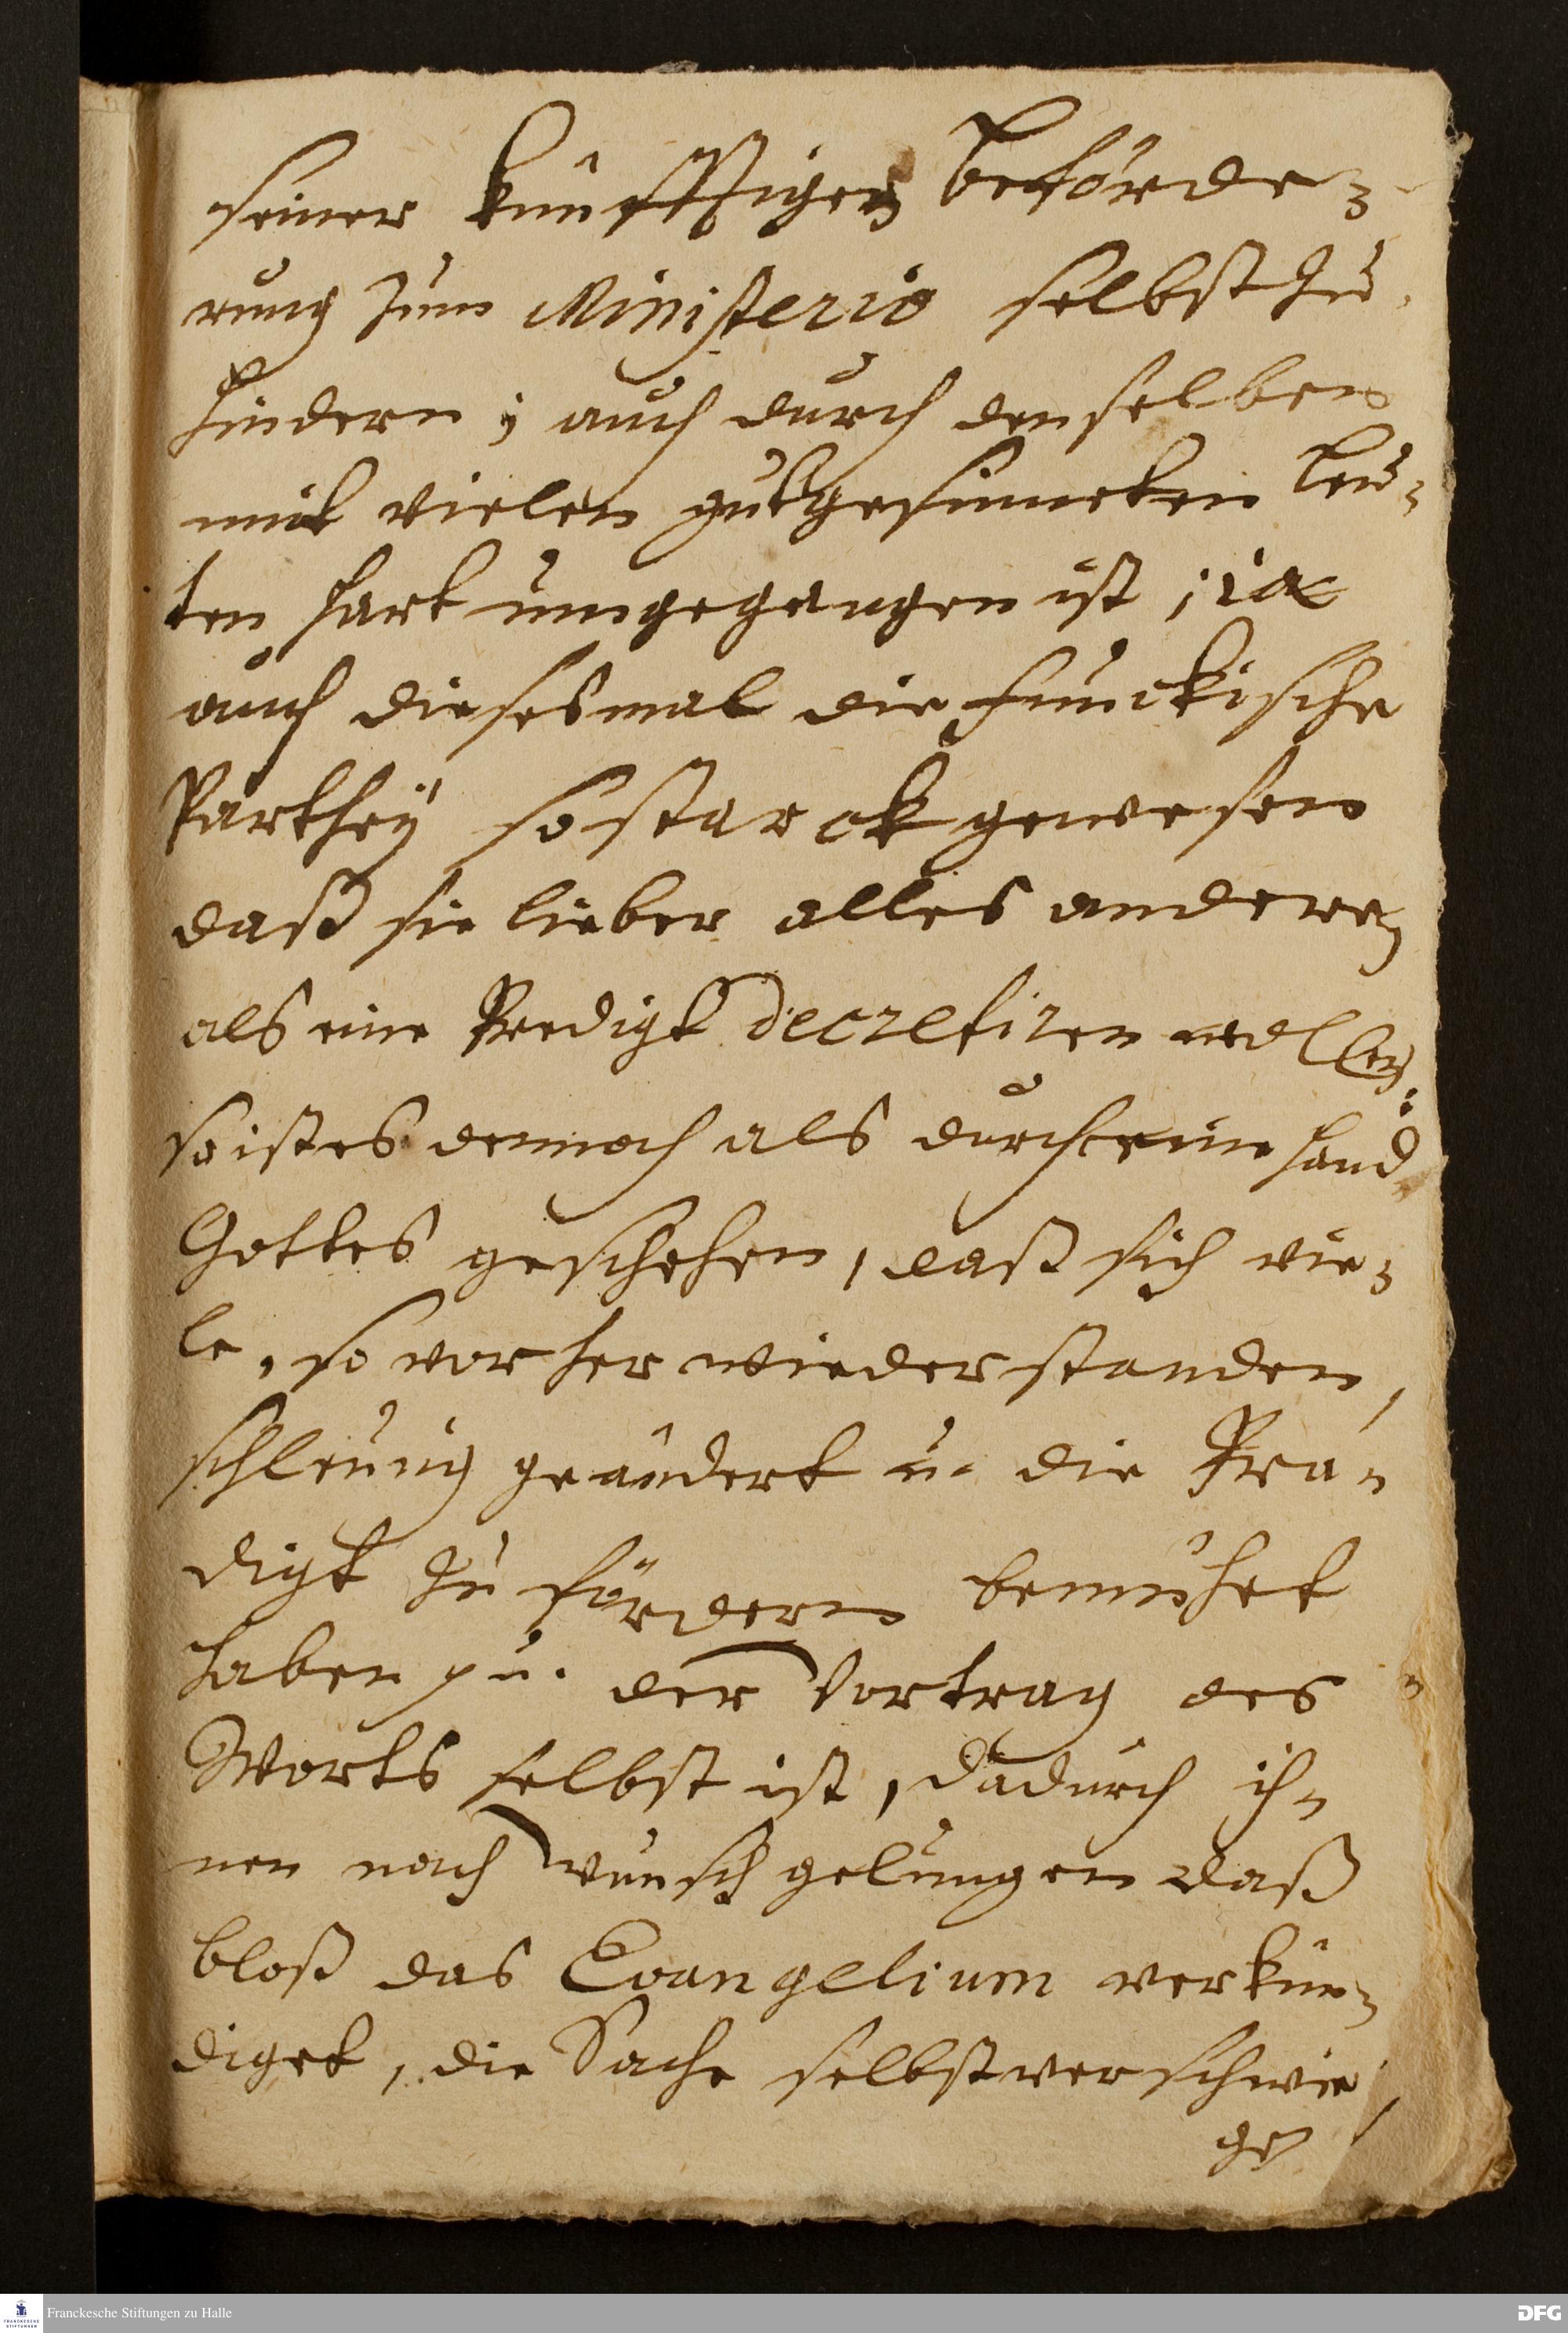 seiner künfftigen beförde-
rung zum Ministerio selbst zu
hindern; auch durch denselben
mit vielen gutgesinneten leu-
ten hart umgegangen ist, ia
auch diesesmal die Funckische
Parthey so starck gewesen
daß sie lieber alles andere
als eine Predigt decretiren wollen:
so ist es dennoch als durch eine Hand
Gottes geschehen, daß sich vie-
le, so vorher wiederstanden,
schleunig geändert u. die Pre-
digt zu fördern bemühet
haben, u. der Vortrag des
Worts selbst ist, dadurch ih-
nen nach Wunsch gelungen daß
bloß das Evangelium verkün-
diget, die Sache selbst verschwie-
gen
Franckesche Stiftungen zu Halle
DFG